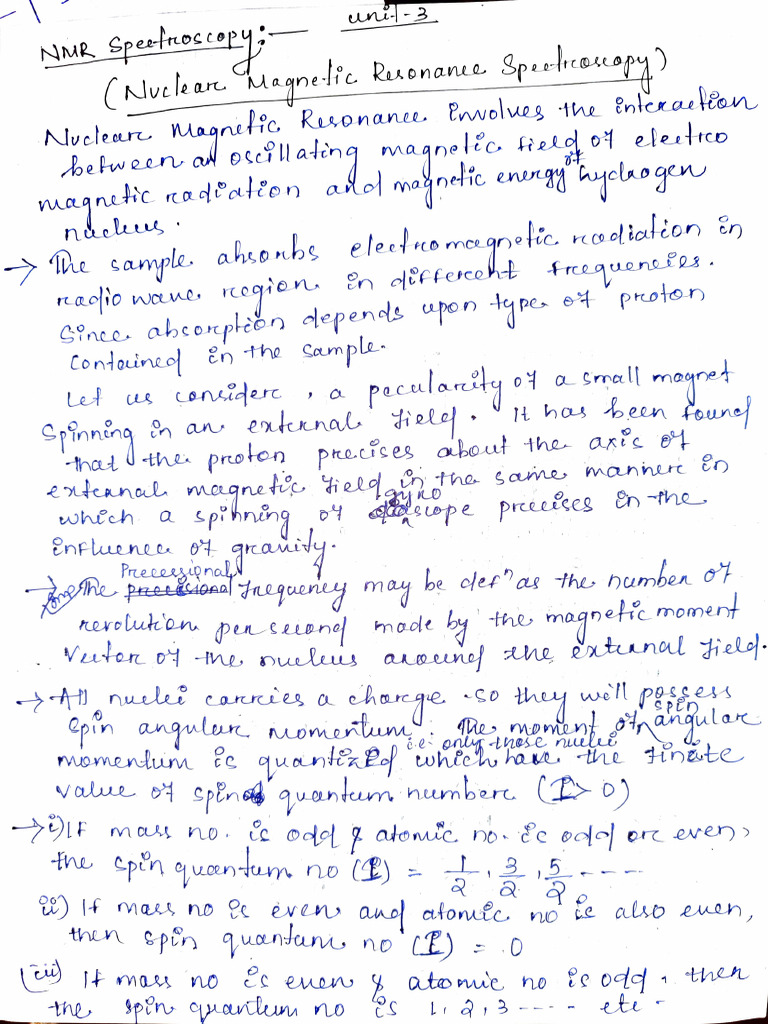 unit-3
NMR Spectroscopy:—
(Nuclear Magnetic Resonance Spectroscopy)
Nuclear Magnetic Resonance involves the interaction
between an oscillating magnetic field of electro
magnetic radiation and magnetic energy of hydrogen
nucleus.
→ The sample absorbs electromagnetic radiation in
radio wave region in different frequencies.
Since absorption depends upon type of proton
contained in the sample.
Let us consider, a pecularity of a small magnet
spinning in an external field. It has been found
that the proton precises about the axis of
external magnetic field in the same manner in
which a spinning of gyroscope precises in the
influence of gravity.
→ The Precessional frequency may be defⁿ as the number of
revolution per second made by the magnetic moment
vector of the nucleus around the external field.
→ All nuclei carries a charge so they will possess
spin angular momentum. The moment of spin angular
momentum is quantized i.e. only those nuclei which have the finite
value of spin quantum number (I > 0)
→ i) If mass no. is odd & atomic no. is odd or even,
the spin quantum no (I) = 1/2, 3/2, 5/2 ----
ii) If mass no is even and atomic no is also even,
then spin quantum no (I) = 0
(iii) If mass no is even & atomic no is odd, then
the spin quantum no is 1, 2, 3 ---- etc.